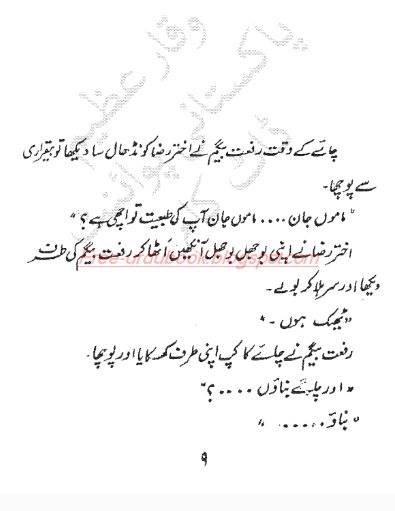 وقار عظیم
پاکستانی پوائنٹ
چائے کے وقت رفعت بیگم نے اختر رضا کو نڈھال سا دیکھا تو بیقراری
سے پوچھا۔
"ماموں جان .... ماموں جان آپ کی طبیعت تو اچھی ہے؟"
اختر رضا نے اپنی بوجھل بوجھل آنکھیں اُٹھا کر رفعت بیگم کی طرف
free-urdubook.blogspot.com
دیکھا اور سر ہلا کر بولے۔
"ٹھیک ہوں۔"
رفعت بیگم نے چائے کا کپ اپنی طرف کھسکایا اور پوچھا۔
"اور چائے بناؤں ....؟"
"بناؤ ....."
۹